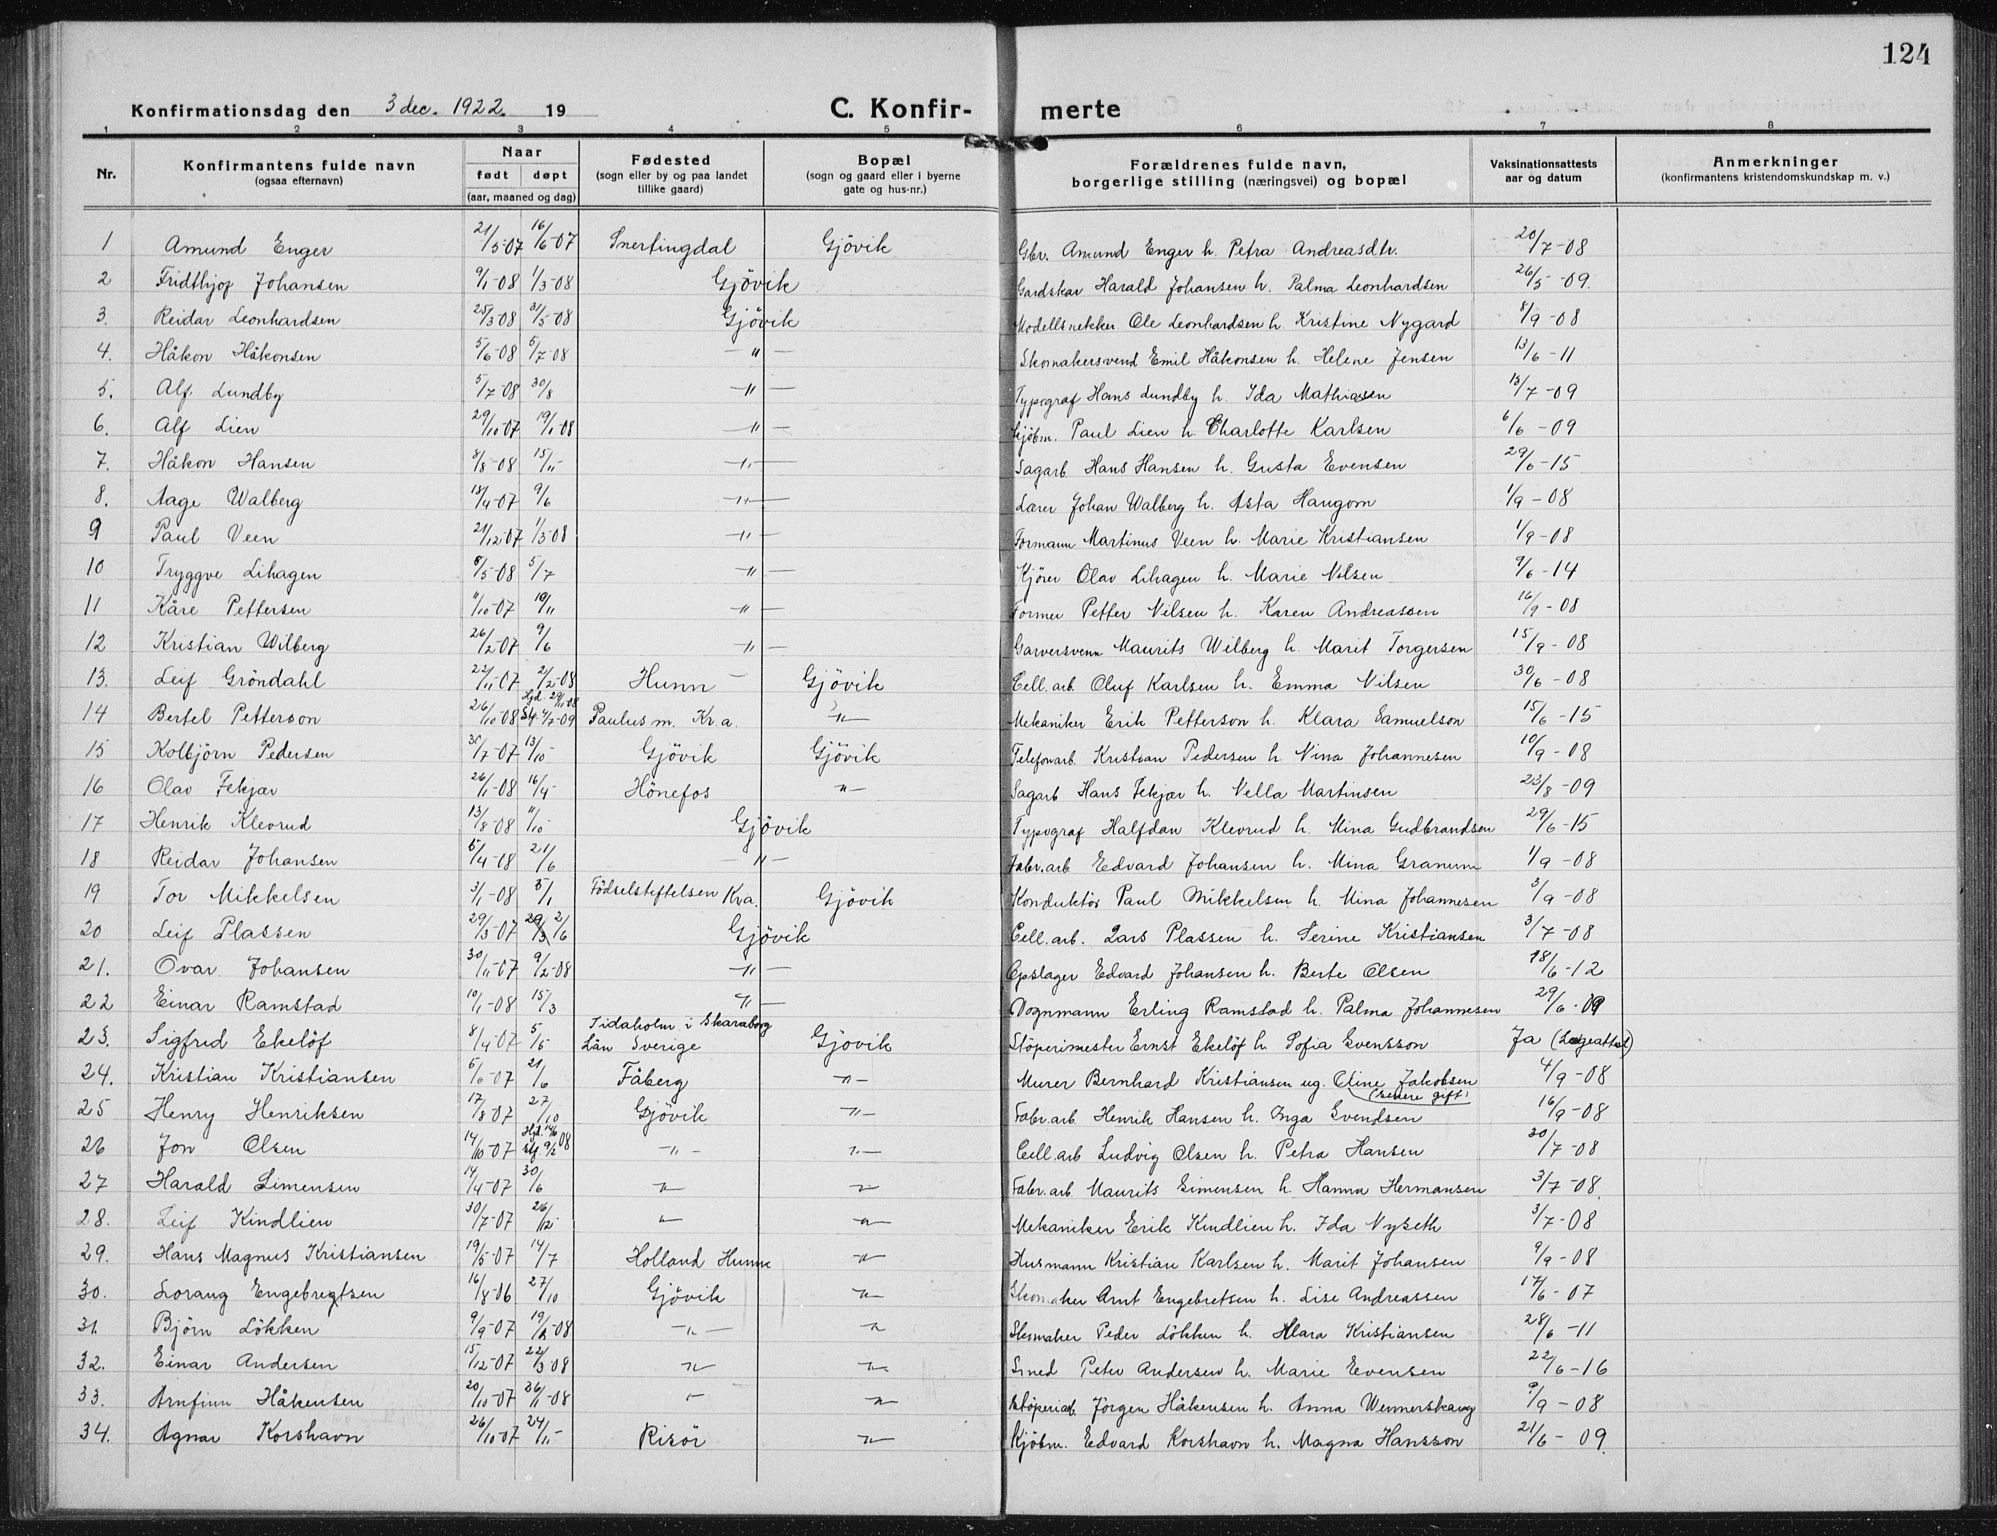 124
Konfirmationsdag den 3 dec. 1922. 19
C. Konfirmerte
1 2 3 4 5 6 7 8
Nr. Konfirmantens fulde navn (ogsaa efternavn) Naar født døpt (aar, maaned og dag) Fødested (sogn eller by og paa landet tillike gaard) Bopæl (sogn og gaard eller i byerne gate og hus-nr.) Forældrenes fulde navn, borgerlige stilling (næringsvei) og bopæl Vaksinationsattests aar og datum Anmerkninger (konfirmantens kristendomskundskap m. v.)
1 Amund Enger 21/5-07 16/6-07 Snertingdal Gjövik Gbr. Amund Enger h. Petra Andreasdtr. 20/7-08
2 Fridthjof Johansen 9/1-08 1/3-08 Gjövik Gardskar Harald Johansen h. Palma Leonhardsen 26/5-09.
3. Reidar Leonhardsen 25/3-08 31/5-08 Gjövik Modellsnekker Ole Leonhardsen h. Kristine Nygard 8/9-08
4. Håkon Håkonsen 5/6-08 5/7-08 —"— Skomakersvend Emil Håkonsen h. Helene Jensen 13/6-11
5. Alf Lundby 5/7-08 30/8 —"— Typograf Hans Lundby h. Ida Mathiasen 13/7-09
6. Alf Lien 29/10-07 19/1-08 —"— Kjöbm. Paul Lien h. Charlotte Karlsen 6/6-09
7. Håkon Hansen 8/8-08 15/11- —"— Sagarb. Hans Hansen h. Gusta Evensen 29/6-15
8. Aage Walberg 13/4-07 9/6 —"— Lærer Johan Walberg h. Asta Haugom 1/9-08
9 Paul Veen 21/12-07 1/3-08 —"— Formann Martinus Veen h. Marie Kristiansen 1/9-08
10 Tryggve Lihagen 8/5-08 5/7 —"— Kjörer Olav Lihagen h. Marie Nilsen 9/6-14
11 Kåre Pettersen 11/10-07 10/11 —"— Former Petter Nilsen h. Karen Andreassen 16/9-08
12 Kristian Wilberg 26/2-07 9/6 —"— Garversvenn Maurits Wilberg h. Marit Torgersen 15/9-08
13. Leif Gröndahl 22/11-07 2/2-08 Hunn Gjövik Cell. arb. Oluf Karlsen h. Emma Nilsen 30/6-08
14 Bertel Petterson 26/10-08 Hjd. 29/11-08 St. 4/7-09 Paulus m. Kr.a. —"— Mekaniker Erik Petterson h. Klara Samuelson 15/6-15
15 Kolbjörn Pedersen 30/7-07 13/10 Gjövik Gjövik Telefonarb. Kristian Pedersen h Nina Johannesen 10/9-08
16 Olav Fekjær 26/1-08 16/4- Hönefos —"— Sagarb Hans Fekjær h. Nella Martinsen 23/8-09
17 Henrik Klevrud 13/8-08 11/10 Gjövik Typograf Halfdan Klevrud h. Mina Gudbrandsen 29/6-15
18 Reidar Johansen 5/4-08 21/6 —"— Fabr.arb Edvard Johansen h. Mina Granum 1/9-08
19 Tor Mikkelsen 3/1-08 5/1 Födselstiftelsen Kr.a. Gjövik Konduktör Paul Mikkelsen h. Mina Johannesen 3/9-08
20 Leif Plassen 29/3-07 29/3 2/6 Gjövik Cell. arb. Lars Plassen h. Serine Kristiansen 3/7-08
21. Ovar Johansen 30/11-07 9/2-08 —"— Opslager Edvard Johansen h. Berte Olsen 18/6-12
22 Einar Ramstad 10/1-08 15/3 —"— Vognmann Erling Ramstad h. Palma Johannesen 29/6-09
23. Sigfred Ekelöf 8/4-07 5/5 Tidaholm i Skaraborg Län Sverige Gjövik Stöperimester Ernst Ekelöf h. Sofia Svensson Ja (Lægeattest)
24. Kristian Kristiansen 5/6-07 21/6 Fåberg —"— Murer Bernhard Kristiansen ug. Oline Jakobsen (senere gift) 4/9-08
25 Henry Henriksen 17/8-07 27/10 Gjövik —"— Fabr.arb. Henrik Hansen h. Inga Svendsen 16/9-08
26 Jon Olsen 14/10-07 Hjd. 14/10 stf 9/2 08 —"— —"— Cell. arb Ludvig Olsen h. Petra Hansen 30/7-08
27 Harald Simensen 14/4-07 30/6 —"— —"— Fabr. arb. Maurits Simensen h. Hanna Hermansen 3/7-08.
28. Leif Kindlien 30/7-07 26/12- —"— —"— Mekaniker Erik Kindlien h. Ida Nyseth 3/7-08
29. Hans Magnus Kristiansen 19/5-07 14/7 Holland Hunn —"— Husmann Kristian Karlsen h. Marit Johansen 9/9-08
30. Lorang Engebretsen 16/8-06 27/10 Gjövik —"— Skomaker Arnt Engebretsen h. Lise Andreassen 17/6-07
31. Björn Lökken 9/9-07 19/1-08 —"— —"— Skomaker Peder Lökken h. Klara Kristiansen 28/6-11
32. Einar Andersen 15/12-07 22/3-08 —"— —"— Smed Peter Andersen h. Marie Evensen 22/6-16
33. Arnfinn Håkensen 20/10-07 26/1-08 —"— —"— Stöperiarb. Jörgen Håkensen h. Anna Wennerskaug 9/9-08
34. Agnar Korshavn 26/10-07 24/11- Risör —"— Kjöbm. Edvard Korshavn h. Magna Hansson 21/6-09.